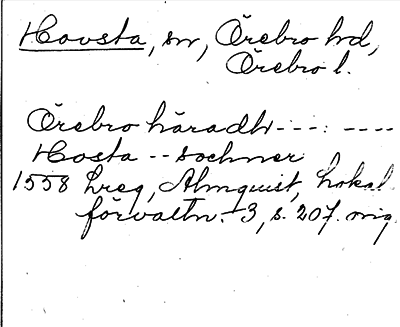 Hovsta, sn, Örebro hd,
Örebro l.
Örebro häradh ---: ----
Hosta -- sochner
1558 Lreg, Almquist, Lokal
förvaltn. 3, s. 207. orig.